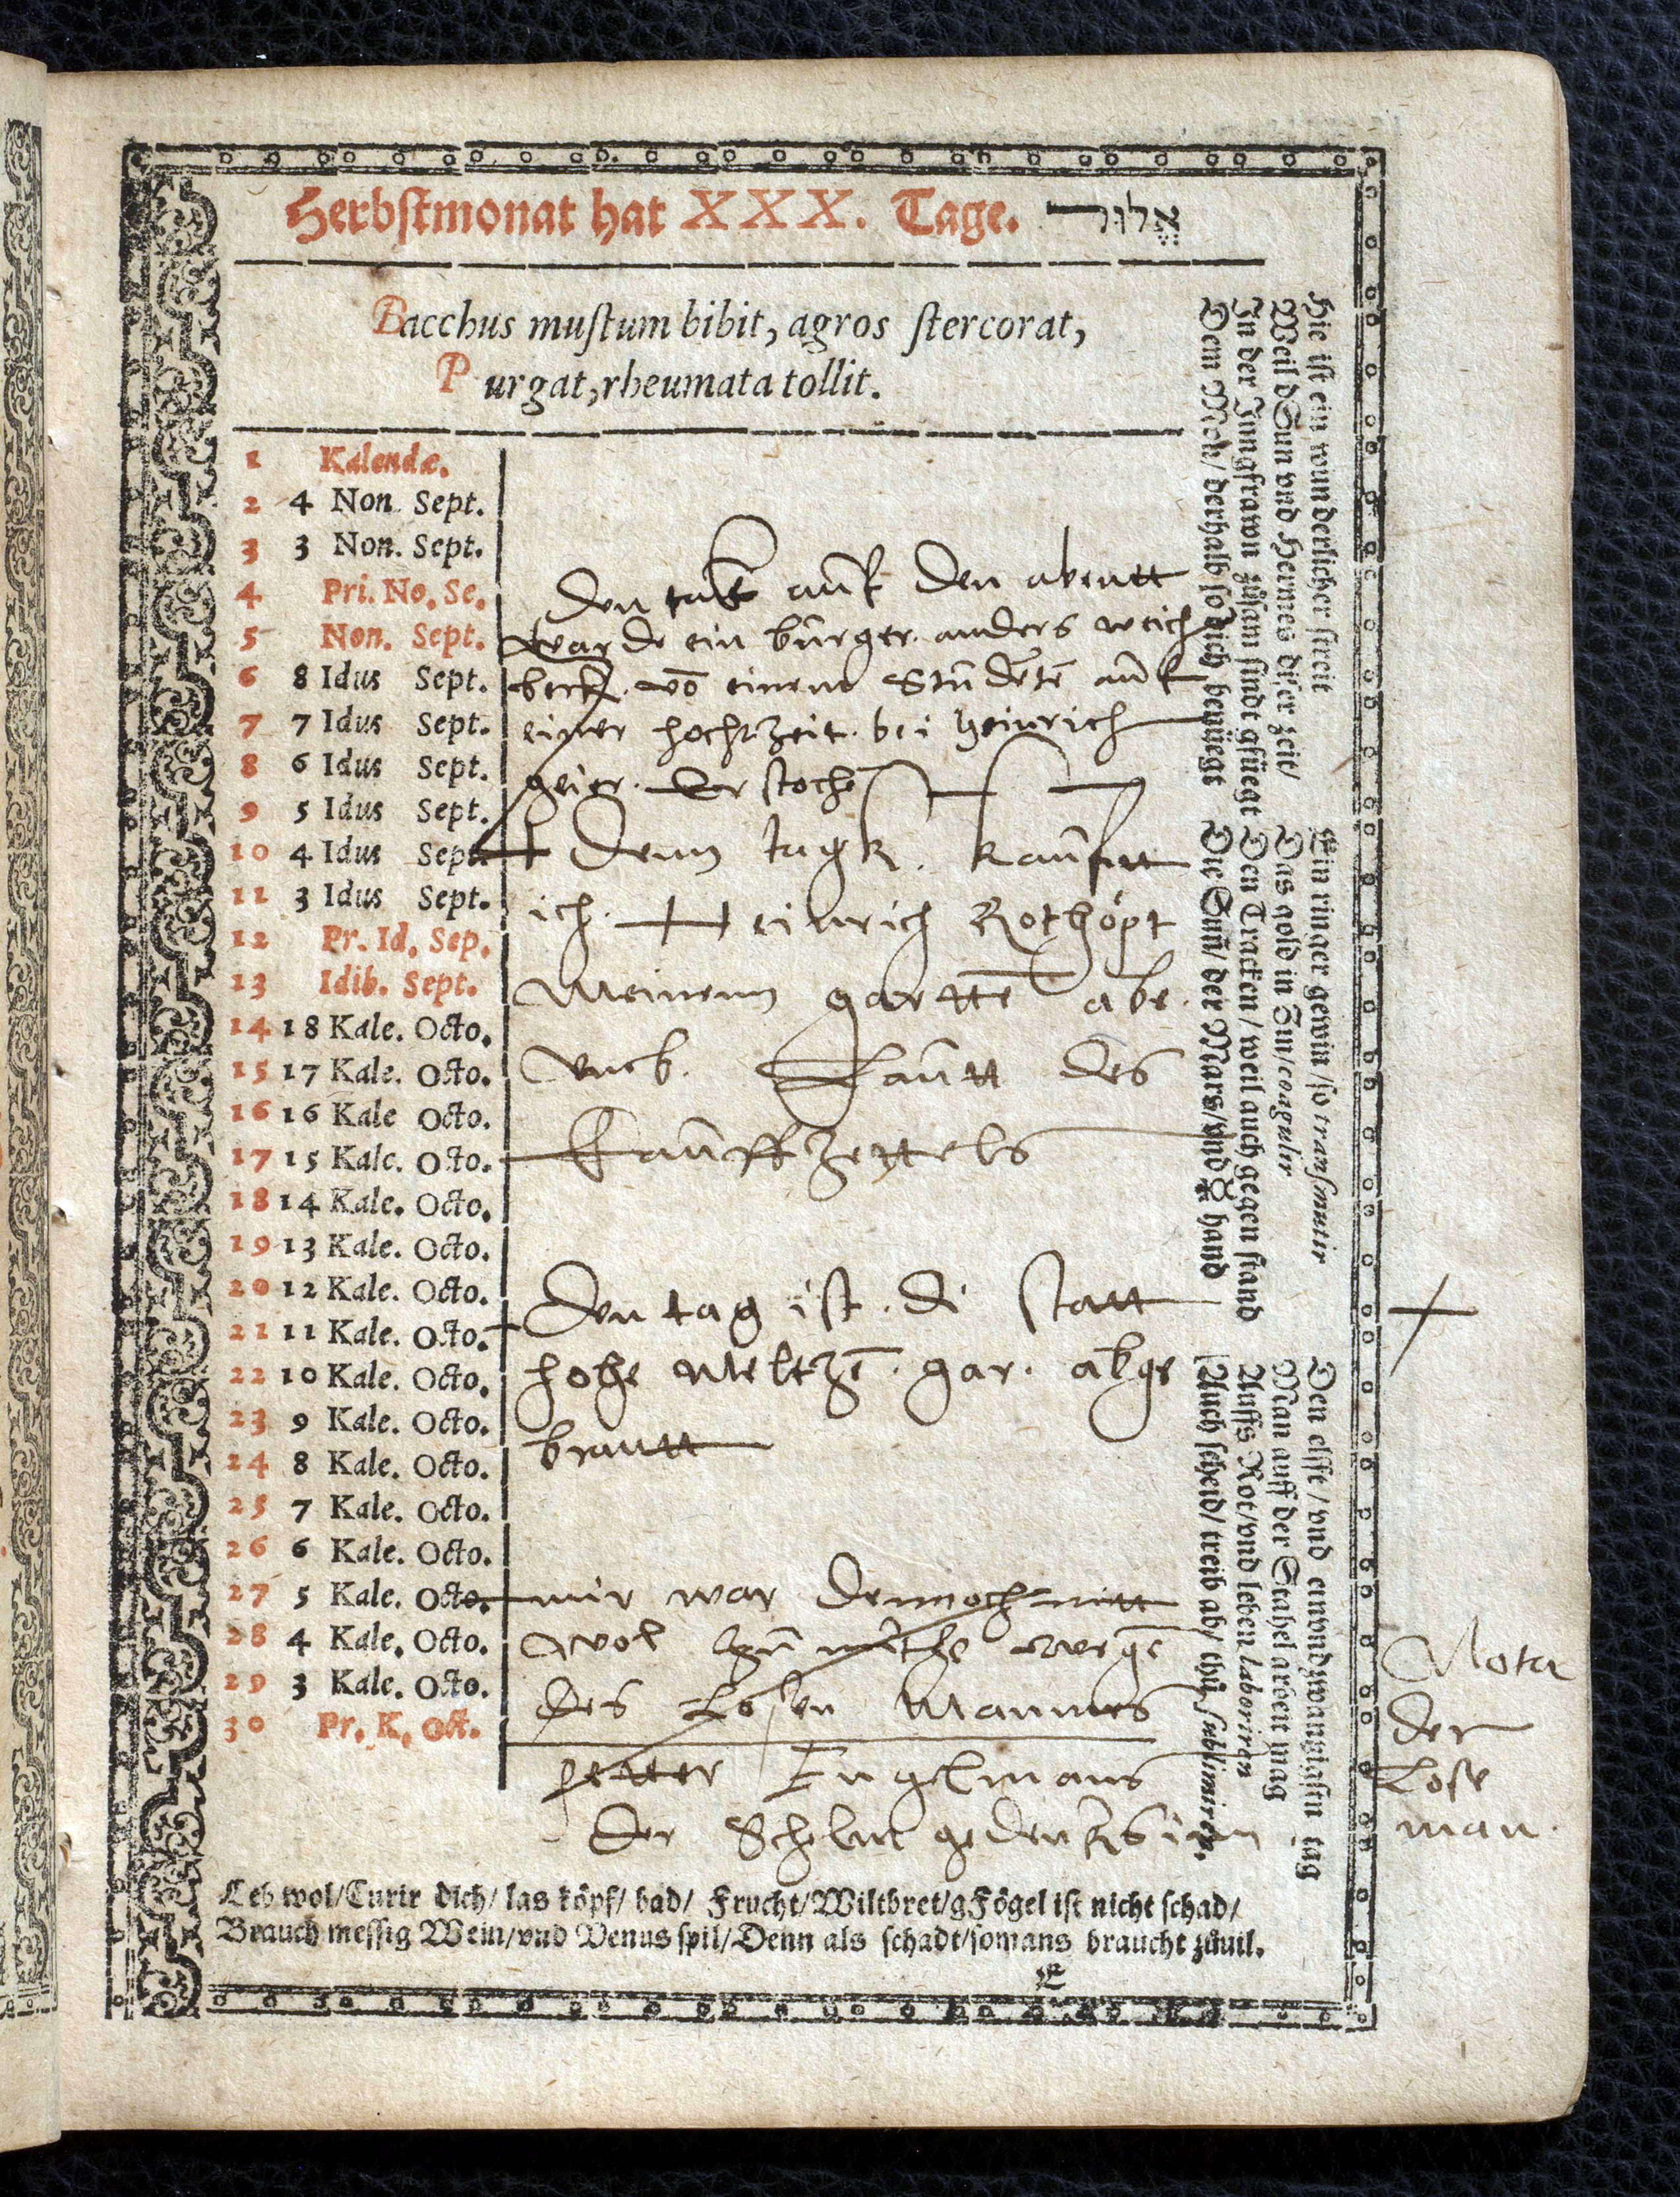 Herbstmonat hat XXX. Tage. אֱלוּל
Bacchus muſtum bibit, agros ſtercorat,
Purgat, rheumata tollit.
1 Kalendæ.
2 4 Non. Sept.
3 3 Non. Sept.
4 Pri. No. Se.
5 Non. Sept.
6 8 Idus Sept.
7 7 Idus Sept.
8 6 Idus Sept.
9 5 Idus Sept.
10 4 Idus Sept.
11 3 Idus Sept.
12 Pr. Id. Sep.
13 Idib. Sept.
14 18 Kale. Octo.
15 17 Kale. Octo.
16 16 Kale Octo.
17 15 Kale. Octo.
18 14 Kale. Octo.
19 13 Kale. Octo.
20 12 Kale. Octo.
21 11 Kale. Octo.
22 10 Kale. Octo.
23 9 Kale. Octo.
24 8 Kale. Octo.
25 7 Kale. Octo.
26 6 Kale. Octo.
27 5 Kale. Octo.
28 4 Kale. Octo.
29 3 Kale. Octo.
30 Pr. K. Oct.
den auf den abentt
warde ein bürger anders weich
beck võ einem Studẽtẽ auf
einer hochtzeit bei heinrich
geier. der stoche
Denn tagk. kaufftt
ich. Heinrich Rothöpt
Meinenn garttẽ abe.
Lautt des
Kauffzettels
Den tag ist. di statt
hohe Meltzẽ. gar. abge
brantt
mir war dennoch nitt
wol zu wegẽ
des Losen Mannes
petter Engelmans
Der Schelm gedenck sinn
Nota
der
Lose
man.
Hie iſt ein wunderlicher ſtreit
Weil d Sun vnd Hermes diſer zeit/
In der Jungfrawn zůſam ſindt gfüegt
Dem Mon/ derhalb ſo dich benüegt
Ein ringer gewin/ ſo tranſmutir
Das gold in Zin/ coagulir
Den Tracken/ weil auch gegen ſtand
Die Sun/ der Mars/ vnd ☿ hand
Den elffte/ vnd einvndzwanzigſtn tag
Man auff der Stahel arbeit mag
Auffs Rot/ vnd leben laboriren
Auch ſcheid/ treib ab/ thů ſublimiren.
Leb wol/Curir dich/ las köpf/ bad/ Frucht/Wiltbret/gFögel iſt nicht ſchad/
Brauch meſſig Wein/vnd Venus ſpil/Denn als ſchadt/ſomans braucht zůuil.
E